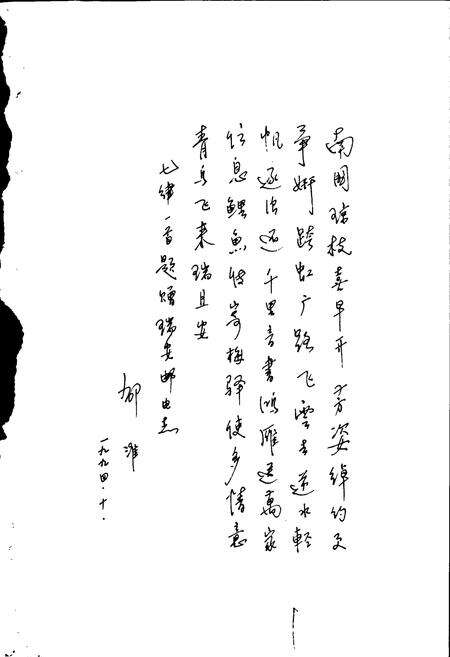 南國琼枝喜早开芳姿绰约更
争妍跨虹广路飞雲去逆水轻
帆逐浪还千里音书鸿雁送萬家
信息鲤鱼传寄梅驿使多情意
青鸟飞来瑞且安
七律一首题赠瑞安邮电志
一九九四·十·